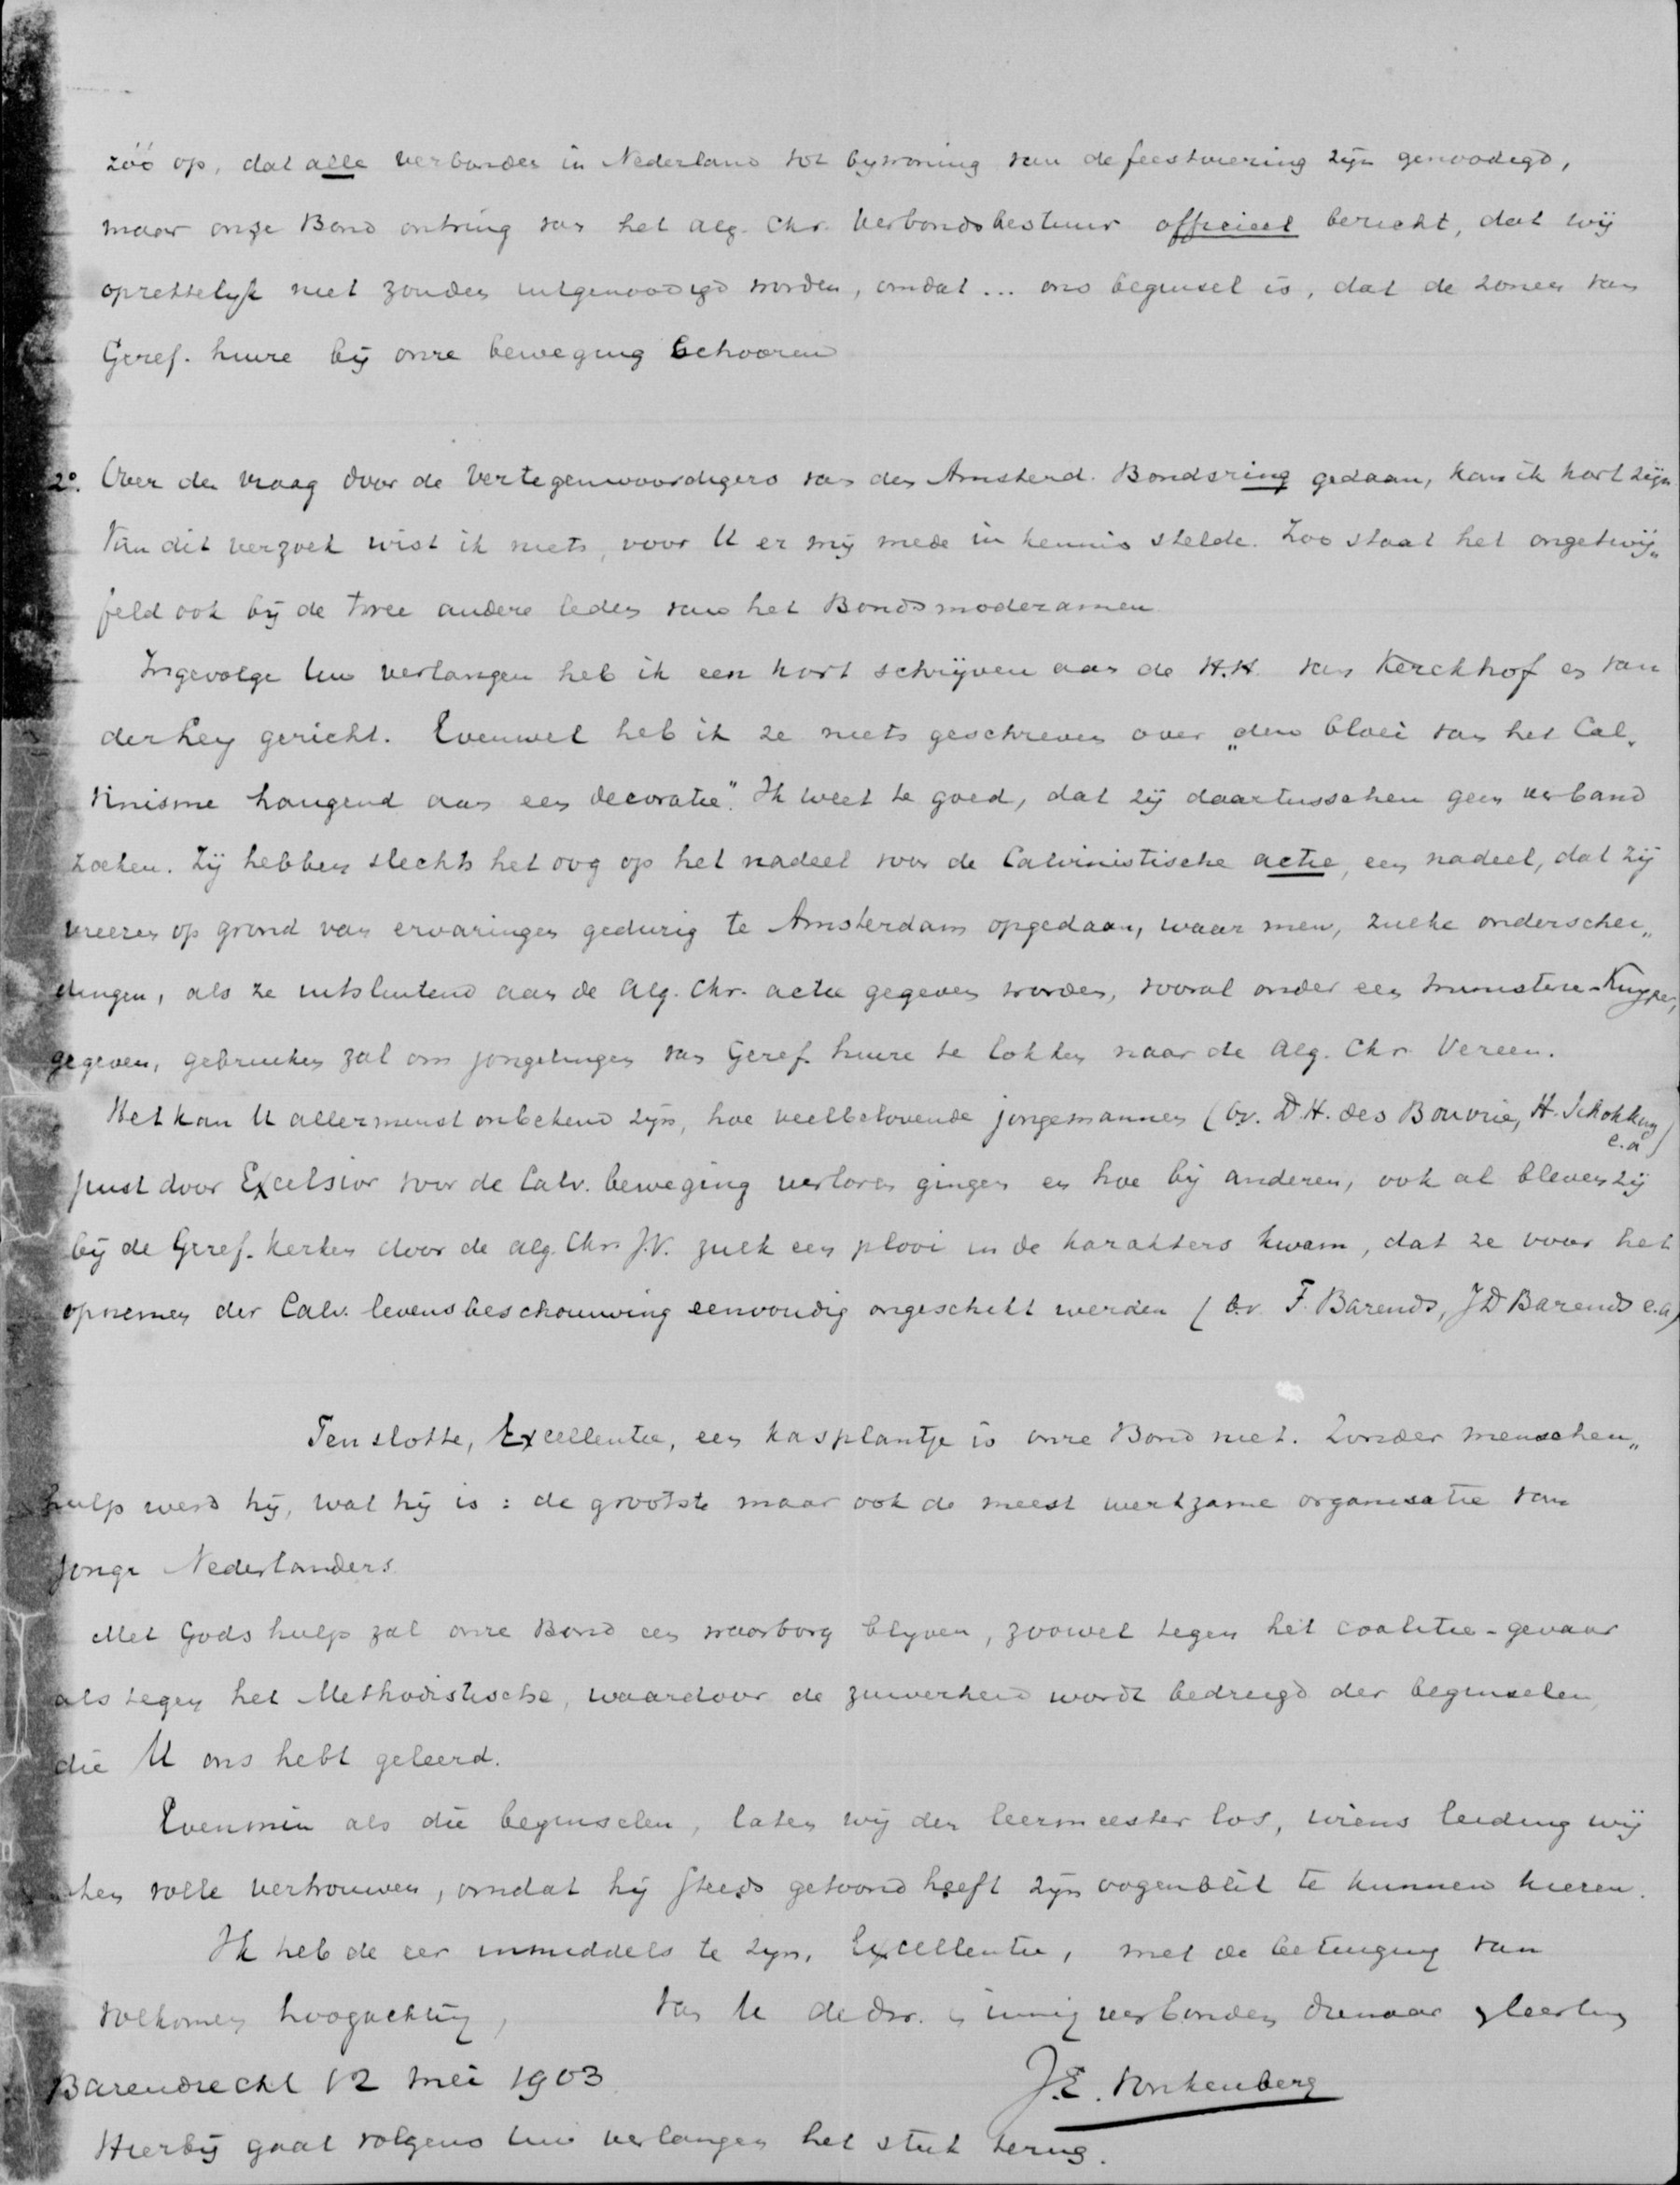 zóó op, dat alle verbonden in Nederland tot bijwoning van de feestviering zijn genoodigd,
maar onze Bond ontving van het Alg. Chr. Verbondsbestuur officieel bericht, dat wij
opzettelijk niet zouden uitgenoodigd worden, omdat ... ons beginsel is, dat de zonen van
Geref. huize bij onze beweging behooren
2°. Over den vraag door de vertegenwoordigers van den Amsterd. Bondsring gedaan, kan ik kort zijn
Van dit verzoek wist ik niets, voor U er mij mede in kennis stelde. Zoo staat het ongetwij„
feld ook bij de twee andere leden van het Bondsmoderamen
Ingevolge Uw verlangen heb ik een kort schrijven aan de H.H. van Kerckhof en van
der Hey gericht. Evenwel heb ik ze niets geschreven over „den bloei van het Cal„
vinisme hangend aan een decoratie". Ik weet te goed, dat zij daartusschen geen verband
zoeken. Zij hebben slechts het oog op het nadeel voor de Calvinistische actie, een nadeel, dat zij
vreezen op grond van ervaringen gedurig te Amsterdam opgedaan, waar men, zulke onderschei„
dingen, als ze uitsluitend aan de Alg. Chr. actie gegeven worden, vooral onder een ministerie-Kuyper,
gegeven, gebruiken zal om jongelingen van Geref. huize te lokken naar de Alg. Chr. Vereen.
Het kan U allerminst onbekend zijn, hoe veelbelovende jongemannen (bv. D.H. des Bouvrie, H. Schokking
e.a)
juist door Excelsior voor de Calv. beweging verloren gingen en hoe bij anderen, ook al bleven zij
bij de Geref. kerken door de alg. Chr. J.V. zulk een plooi in de karakters kwam, dat ze voor het
opnemen der Calv. levensbeschouwing eenvoudig ongeschikt werden (b.v. F. Barends, J D Barends e.a)
Ten slotte, Excellentie, een kasplantje is onze Bond niet. Zonder menschen„
hulp werd hij, wat hij is: de grootste maar ook de meest werkzame organisatie van
jonge Nederlanders
Met Gods hulp zal onze Bond een waarborg blijven, zoowel tegen het coalitie-gevaar
als tegen het Methodistische, waardoor de zuiverheid wordt bedreigd der beginselen
die U ons hebt geleerd.
Evenmin als die beginselen, laten wij den leermeester los, wiens leiding wij
ten volle vertrouwen, omdat hij steeds getoond heeft zijn oogenblik te kunnen kiezen.
Ik heb de eer inmiddels te zijn, Excellentie, met de betuiging van
volkomen hoogachting, van U de dw. en innig verbonden dienaar en leerling
Barendrecht 12 mei 1903
J.E. Vonkenberg
Hierbij gaat volgens Uw verlangen het stuk terug.